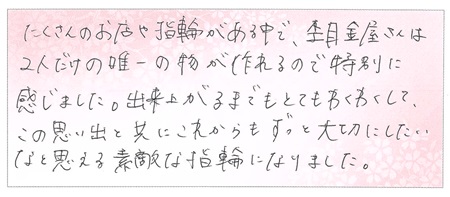 たくさんのお店や指輪がある中で、杢目金屋さんは
2人だけの唯一の物が作れるので特別に
感じました。出来上がるまでもとてもわくわくして、
この思い出と共にこれからもずっと大切にしたい
なと思える素敵な指輪になりました。